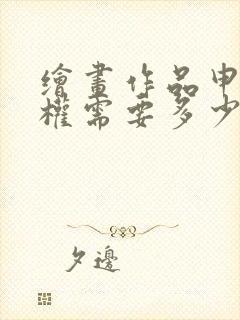 繪畫作品申
權需要多少
夕邊